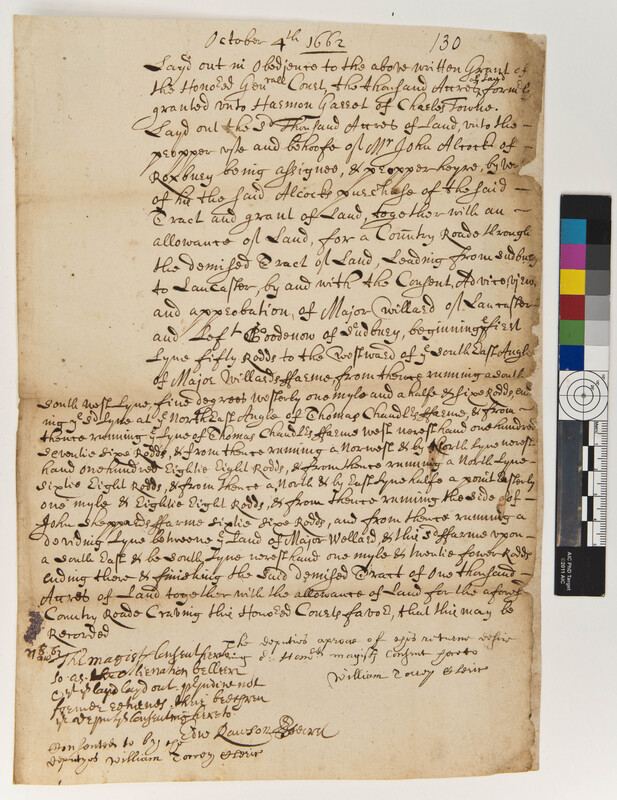 October 4th 1662
130
Layd out in Obedience to the above written Grant of
the Honored Genrall Court, the thousand Accres of Land formerly
granted vnto Harmon Garret of Charles Towne.
Layd out the sd Thousand Accres of Land, vnto the
propper vse and behoofe of Mr John Alcock of
Roxbury being assignee, & propper heyre, by ver
of his the said Alcocks purchase of the said
Tract and grant of Land, together with an
allowance of Land, for a Country Roade through
the demised Tract of Land Leading from Sudbury
to Lancaster, by and with the Consent, Advice, view
and approbation, of Major Willard of Lancaster
and Left Goodenow of Sudbury, beginning ye first
Lyne fifty Rodds to the Westward of ye South East Angle
of Major Willards ffarme, from thence running a South
South West Lyne, five degrees Westerly one myle and a halfe & sixe Rodds, end
ing ye sd Lyne at ye North East Angle of Thomas Chandlrs ffarme, & from
thence running ye Lyne of Thomas Chandlrs ffarme West nerest hand one hundred
Seventie sixe Rodds, & from thence running a Norwest & by North Lyne nerest
hand one hundred Eightie Eight Rodds, & from thence running a North Lyne
sixtie Eight Rodds, & from thence a North & by East Lyne halfe a point Easterly
one myle & Eightie Eight Rodds, & from thence running the side of
John Sheppards ffarme sixtie sixe Rodds, and from thence running a
deviding Lyne betweene ye Land of Major Wellard & this sd ffarme vpon
a South East & be South Lyne nerest hand one myle & twentie fower Rodds
ending there & finishing the said demised Tract of One thousand
Accres of Land together with the allowance of Land for the afores
Country Roade Craving this Honored Courts favor, that this may be
Recorded
The magists Consent
so as
layd out prejudice not
former
ye deputys Consenting hereto
Edw Rawson Secret
Consented to by the
deputyes William Torrey Cleric
The deputies aprove of this returne desire
or Honord magists Consent hereto
William Torrey Cleric
AIC PhD Target
©2011 AIC